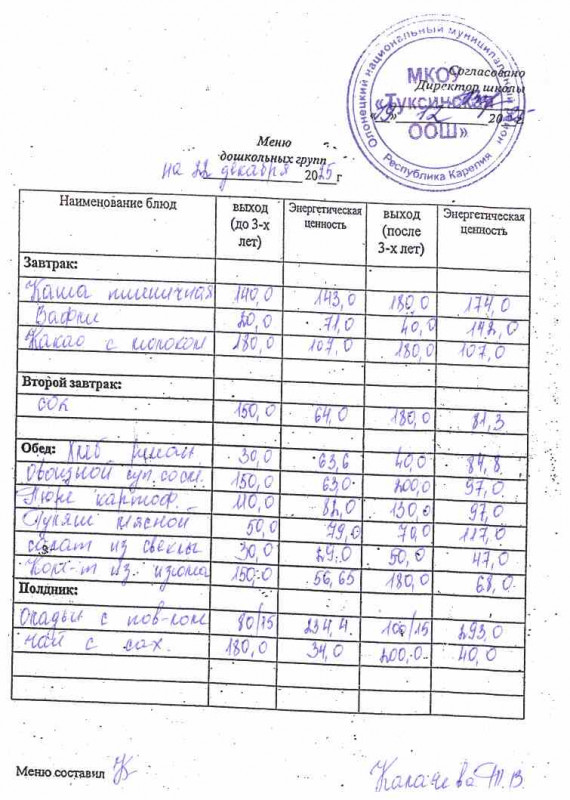 Олонецкий национальный муниципальный район
Республика Карелия
МКОУ
«Туксинская
ООШ»
Согласовано
Директор школы
«19» 12 2025
Меню
дошкольных групп
на 22 декабря 2025 г
Наименование блюд выход (до 3-х лет) Энергетическая ценность выход (после 3-х лет) Энергетическая ценность
Завтрак:
Каша пшеничная 140,0 143,0 180,0 174,0
Вафли 20,0 71,0 40,0 142,0
Какао с молоком 180,0 107,0 180,0 107,0
Второй завтрак:
сок 150,0 64,0 180,0 81,3
Обед: Хлеб 30,0 63,6 40,0 84,8
Овощной суп. 150,0 63,0 200,0 97,0
Пюре картоф. 110,0 82,0 130,0 97,0
Гуляш мясной 50,0 79,0 70,0 117,0
салат из свеклы 30,0 29,0 50,0 47,0
Комп-т из изюма 150,0 56,65 180,0 68,0
Полдник:
Оладьи с пов-лом 80/15 234,4 100/15 293,0
чай с сах. 180,0 34,0 200,0 40,0
Меню составил Калачева Т.В.